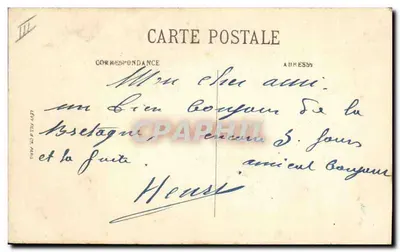 III
CARTE POSTALE
CORRESPONDANCE ADRESSE
Mon cher ami.
un bien bonjour de la
Bretagne, encore 3 jours
et la fuite. amical bonjour
Henri
CPAREMA